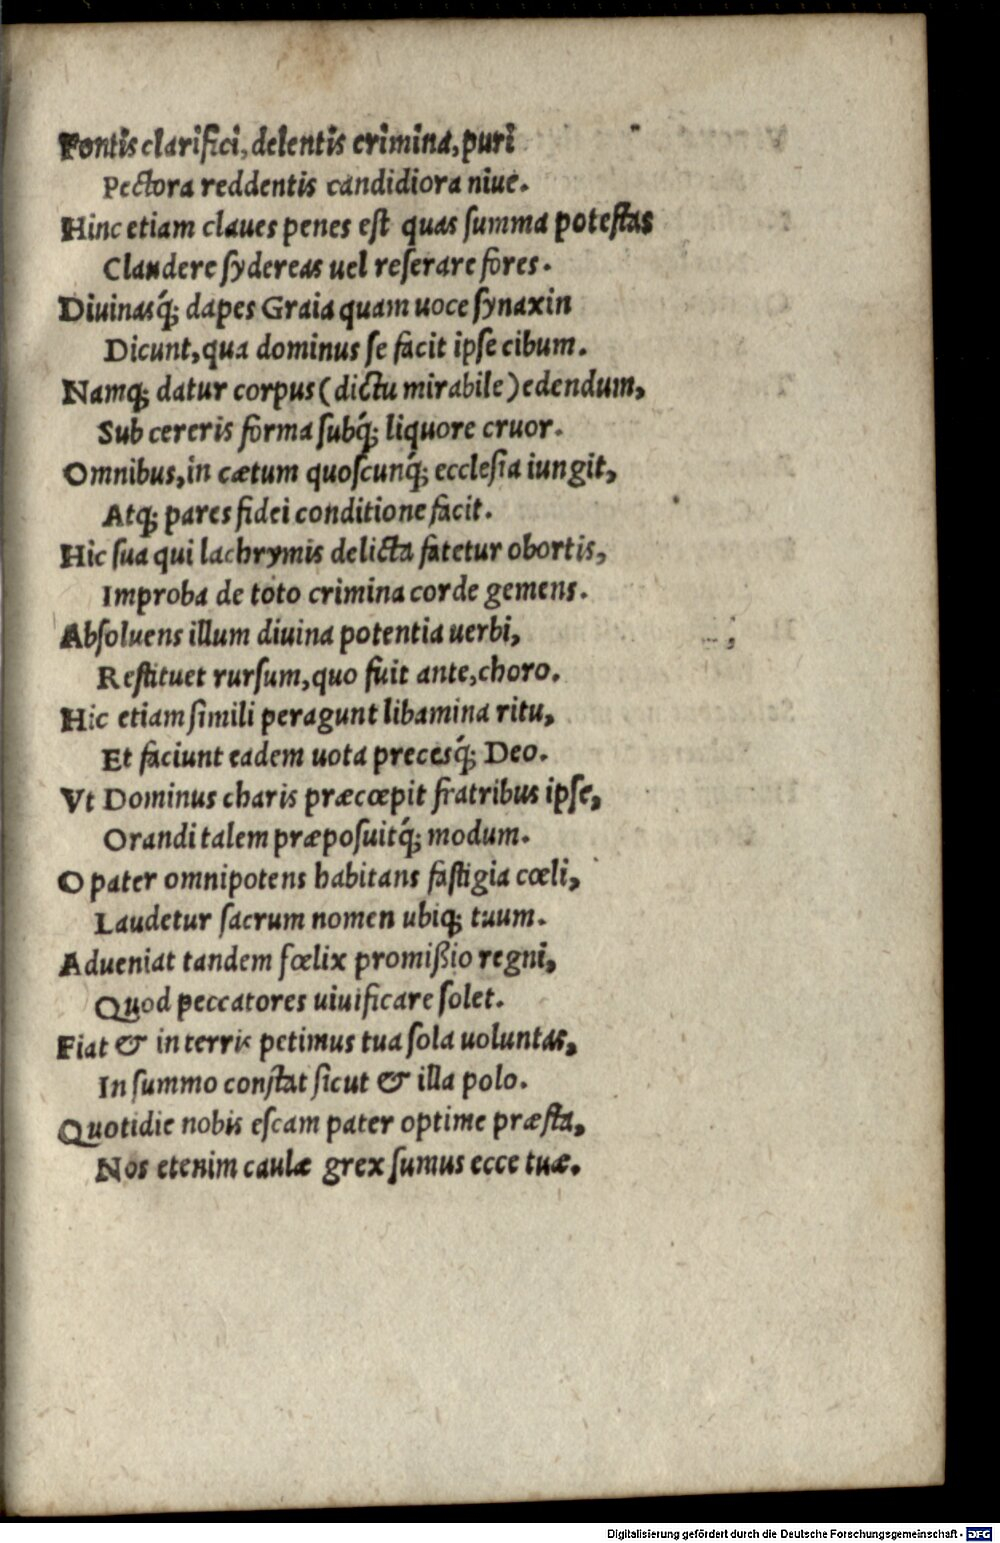 Fontis clarifici, delentis crimina, puri
Pectora reddentis candidiora niue.
Hinc etiam claues penes est quas summa potestas
Claudere sydereas uel reserare fores.
Diuinasq́; dapes Graia quam uoce synaxin
Dicunt, qua dominus se facit ipse cibum.
Namq; datur corpus (dictu mirabile) edendum,
Sub cereris forma subq́; liquore cruor.
Omnibus, in cætum quoscunq́; ecclesia iungit,
Atq; pares fidei conditione facit.
Hic sua qui lachrymis delicta fatetur obortis,
Improba de toto crimina corde gemens.
Absoluens illum diuina potentia uerbi,
Restituet rursum, quo fuit ante, choro.
Hic etiam simili peragunt libamina ritu,
Et faciunt eadem uota precesq́; Deo.
Vt Dominus charis præcœpit fratribus ipse,
Orandi talem præposuitq́; modum.
O pater omnipotens habitans fastigia cœli,
Laudetur sacrum nomen ubiq; tuum.
Adueniat tandem fœlix promißio regni,
Quod peccatores uiuificare solet.
Fiat & in terris petimus tua sola uoluntas,
In summo constat sicut & illa polo.
Quotidie nobis escam pater optime præsta,
Nos etenim caulæ grex sumus ecce tuæ.
Digitalisierung gefördert durch die Deutsche Forschungsgemeinschaft - DFG